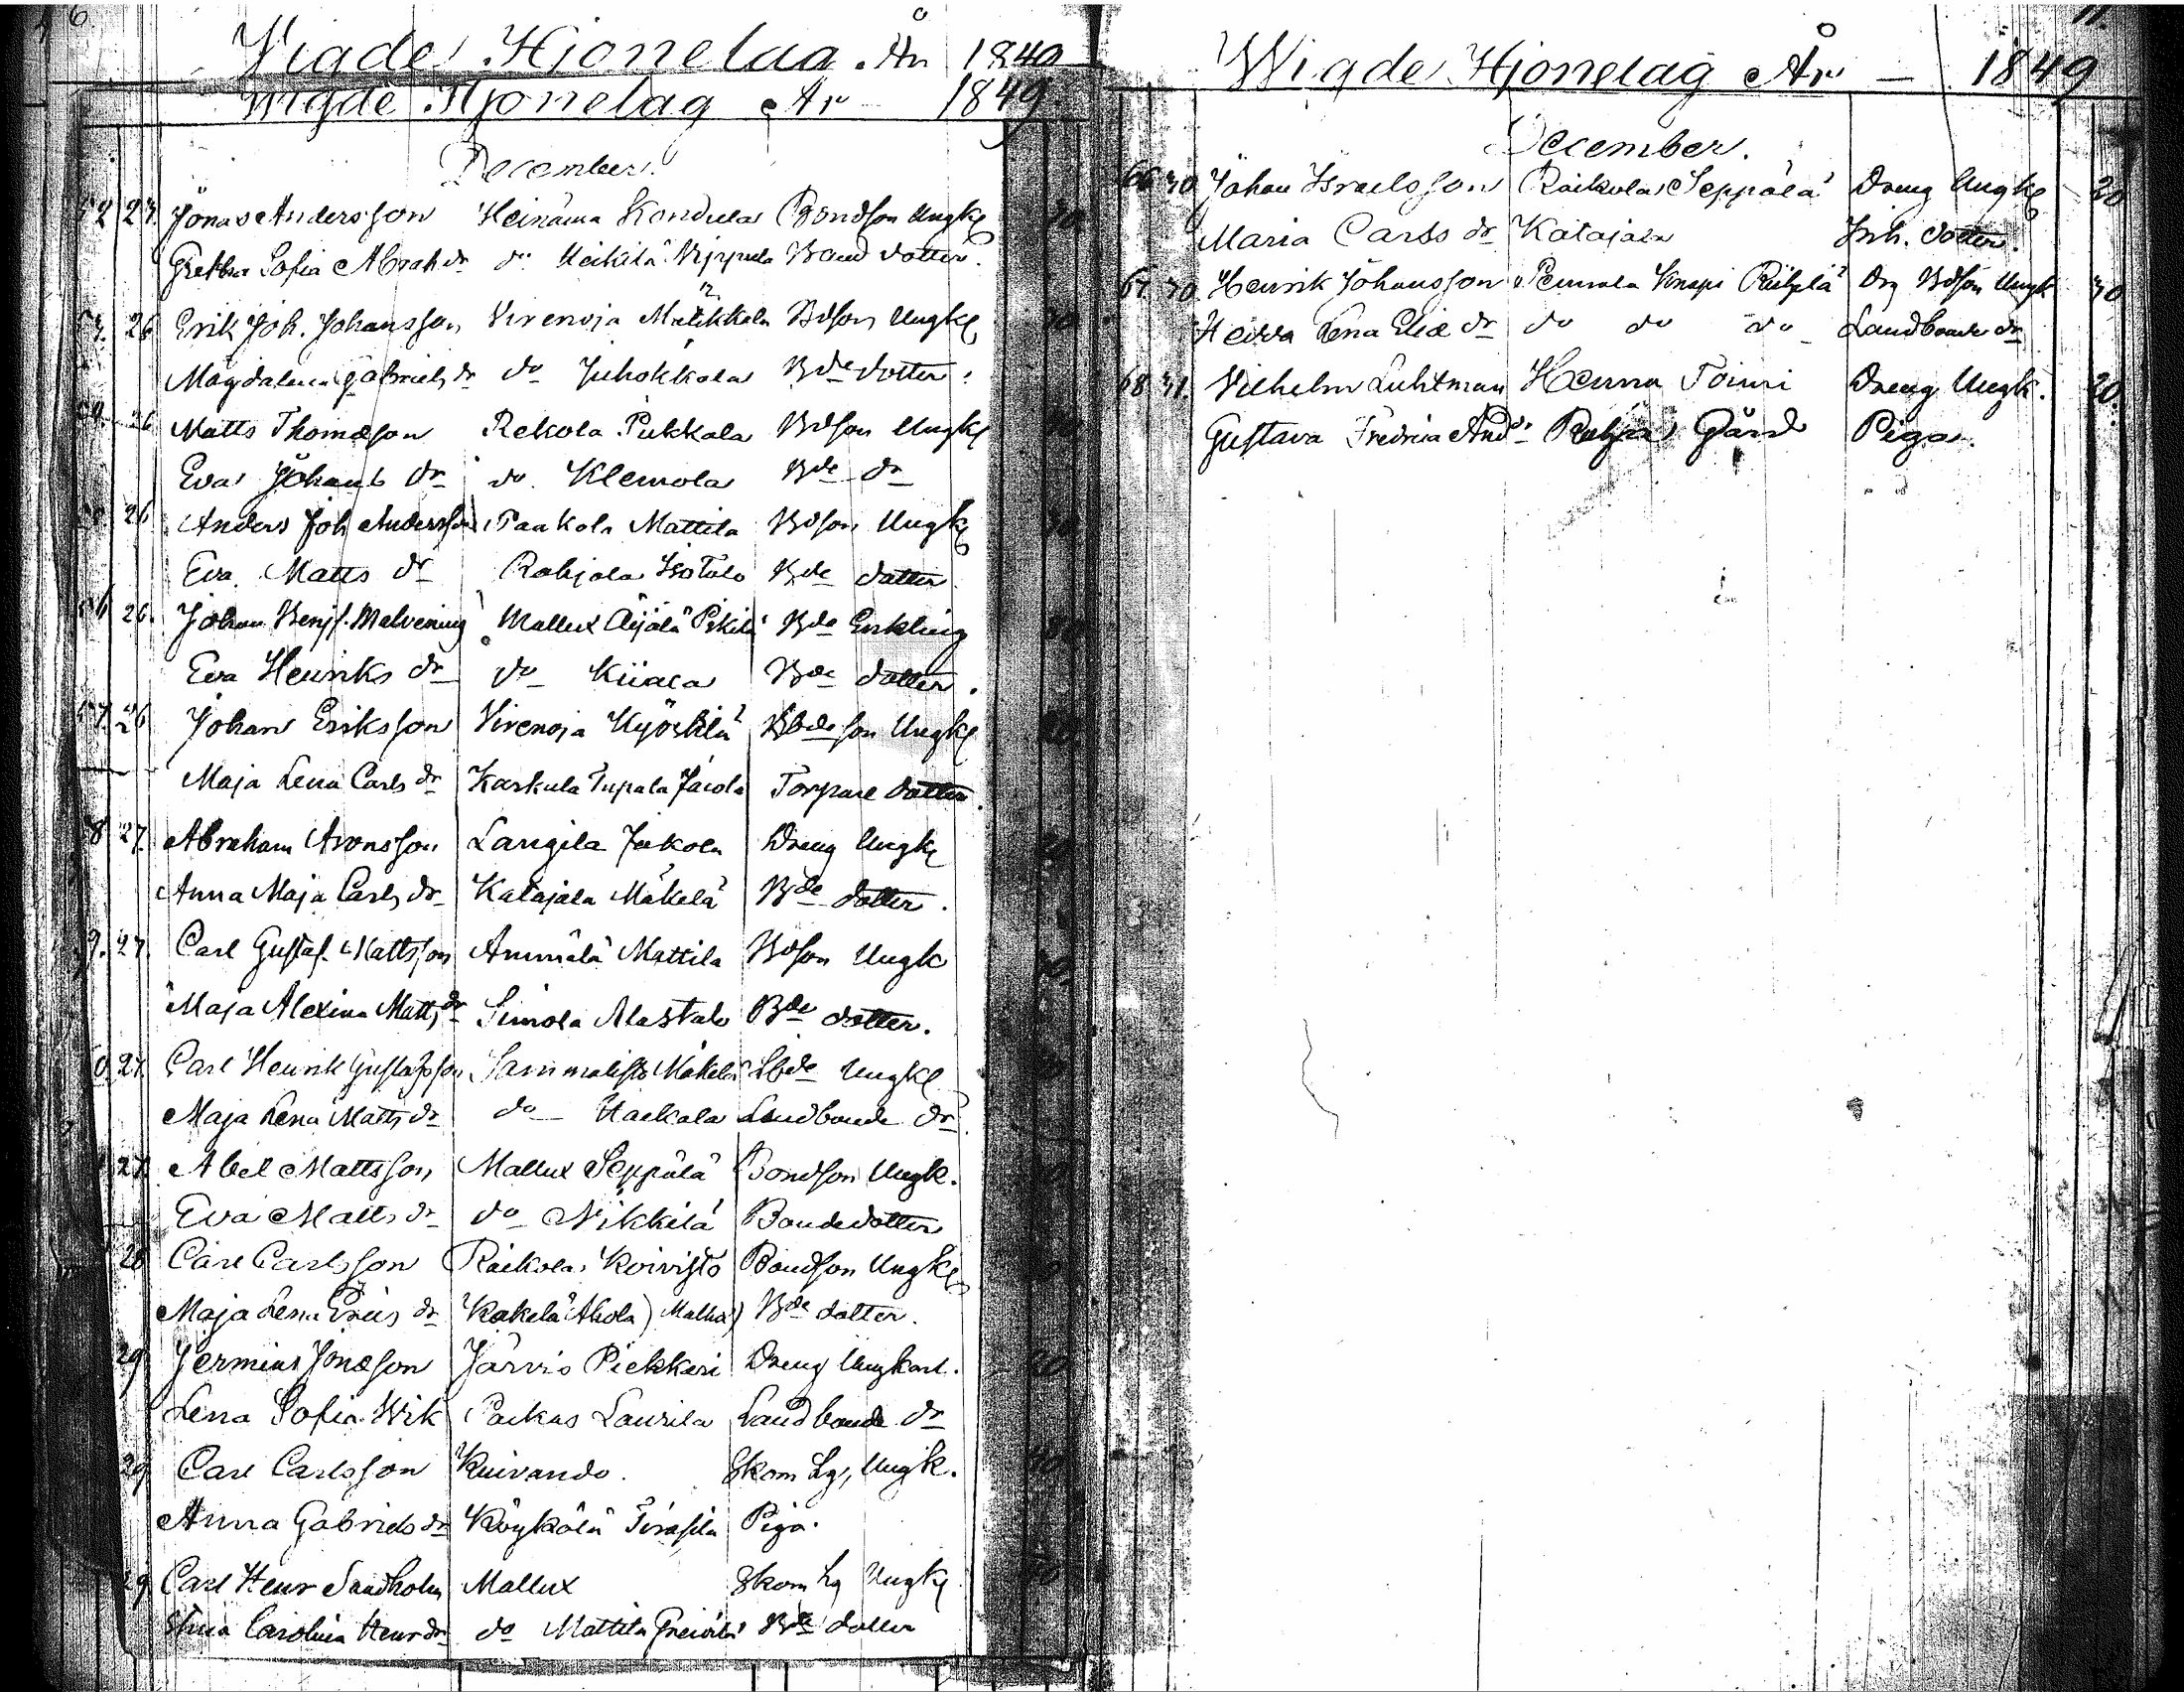 6.
Vigde Hjonelag År 1849
Wigde Hjonelag År 1849
December.
23. Jonas Andersson Heinäma Kondula Bondson Ungk
Gretha Sofia Abrah dr do Heikilä Nippula Bond dotter.
26 Erik Joh. Johansson Virenoja Matikkala Bdson Ungk
Magdalena Gabriels dr do Juhokkola Bde dotter.
26 Matts Thomæson Rekola Pukkala Bdson Ungk
Eva Johans dr do Klemola Bde dr
26 Anders Joh Andersson Paakola Mattila Bdson Ungk
Eva Matts dr Rahjala Isotalo Bde dotter
26. Johan Benj. Malvening Mallux Äijälä Pikilä Bde Enkling
Eva Henriks dr do Kiiala Bde dotter.
57. 26 Johan Eriksson Virenoja Kyöstilä Lbde son Ungk
Maja Lena Carls dr Karkula Tupala Jacola Torpare dotter.
8 27. Abraham Aronsson Langila Jakola Dreng Ungk
Anna Maja Carls dr Katajala Mäkelä Bde dotter.
9. 27. Carl Gustaf Mattsson Ammälä Mattila Bdson Ungk
Maja Alexina Matts dr Simola Alastalo Bde dotter.
0 27. Carl Henrik Gustafsson Sammalisto Mäkelä Lbde Ungk
Maja Lena Matts dr do Haekala Landbonde dr
27. Abel Mattsson Mallux Seppälä Bondson Ungk.
Eva Matts dr do Nikkilä Bondedotter
28 Carl Carlsson Raikola Koivisto Bondson Ungk
Maja Lena Eriks dr Kakelä Ahola) Malka) Bde dotter.
29 Jermias Jonæson Järvis Piekkari Dreng Ungkarl.
Lena Sofia Wik Paikas Laurila Landbonde dr
29 Carl Carlsson Kuivando. Skom Lg, Ungk. 40
Anna Gabriels dr Köykälä Tirasila Piga.
29 Carl Henr Sandholm Mallux Skom Lg Ungk
Stina Carolina Henr dr do Mattila Bde dotter
Wigde Hjonelag År – 1849
December.
66 30 Johan Israelsson Raikola Seppälä Dreng Ungk 20
Maria Carls dr Katajala Inh. dotter.
67 30 Henrik Johansson Pennala Knapi Riihelä Drg Bdson Ungk 30
Hedda Lena Eliæ dr do do do Landbonde dr
68 31. Vilhelm Luhtman Henna Toimi Dreng Ungk. 20.
Gustava Fredrica And dr Gård Piga.